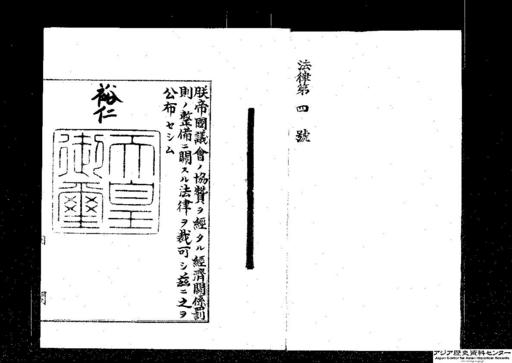 法律第四號
朕帝國議會ノ協贊ヲ經タル經濟關係罰
則ノ整備ニ關スル法律ヲ裁可シ茲ニ之ヲ
公布セシム
裕仁
天皇
御璽
アジア歴史資料センター
Japan Center for Asian Historical Records